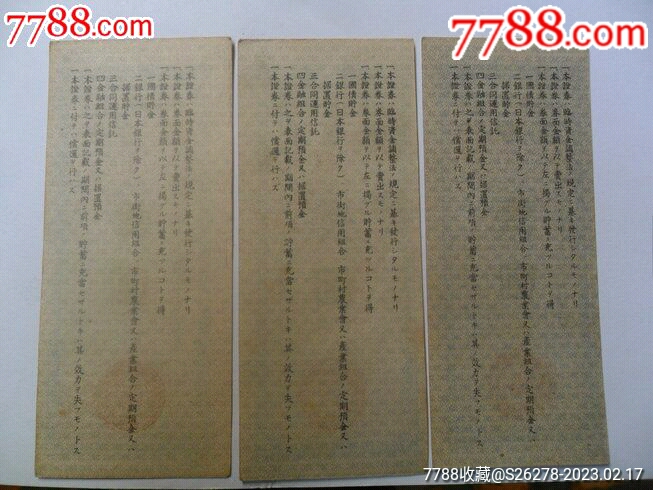 7788.com
7788.com
一本證券ハ臨時資金調整法ノ規定ニ基キ發行シタルモノナリ
一本證券ハ券面金額ヲ以テ賣出スモノナリ
一本證券ハ券面金額ヲ以テ左ニ揭グル貯蓄ニ充ツルコトヲ得
一國債貯金
二銀行(日本銀行ヲ除ク)、市街地信用組合、市町村農業會又ハ產業組合ノ定期預金又ハ
据置貯金
三合同運用信託
四金融組合ノ定期預金又ハ据置預金
一本證券ハ之ヲ表面記載ノ期間內ニ前項ノ貯蓄ニ充當セザルトキハ其ノ效力ヲ失フモノトス
一本證券ニ付テハ償還ヲ行ハズ
一本證券ハ臨時資金調整法ノ規定ニ基キ發行シタルモノナリ
一本證券ハ券面金額ヲ以テ賣出スモノナリ
一本證券ハ券面金額ヲ以テ左ニ揭グル貯蓄ニ充ツルコトヲ得
一國債貯金
二銀行(日本銀行ヲ除ク)、市街地信用組合、市町村農業會又ハ產業組合ノ定期預金又ハ
据置貯金
三合同運用信託
四金融組合ノ定期預金又ハ据置預金
一本證券ハ之ヲ表面記載ノ期間內ニ前項ノ貯蓄ニ充當セザルトキハ其ノ效力ヲ失フモノトス
一本證券ニ付テハ償還ヲ行ハズ
一本證券ハ臨時資金調整法ノ規定ニ基キ發行シタルモノナリ
一本證券ハ券面金額ヲ以テ賣出スモノナリ
一本證券ハ券面金額ヲ以テ左ニ揭グル貯蓄ニ充ツルコトヲ得
一國債貯金
二銀行(日本銀行ヲ除ク)、市街地信用組合、市町村農業會又ハ產業組合ノ定期預金又ハ
据置貯金
三合同運用信託
四金融組合ノ定期預金又ハ据置預金
一本證券ハ之ヲ表面記載ノ期間內ニ前項ノ貯蓄ニ充當セザルトキハ其ノ效力ヲ失フモノトス
一本證券ニ付テハ償還ヲ行ハズ
7788收藏@S26278-2023.02.17